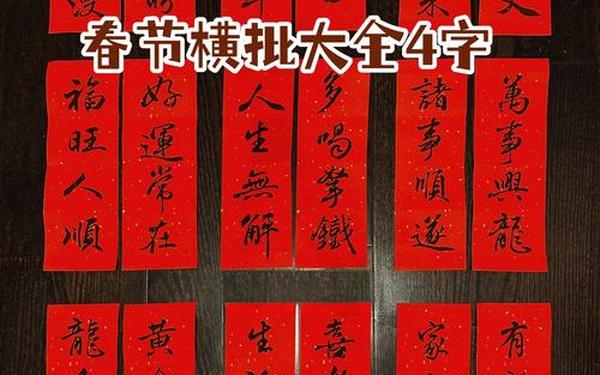 春节横批大全4字
萬事興龍
諸事順遂
多喝拏鐵
人生無解
好運常在
福旺人順
有
家
喜
生
黄
龍